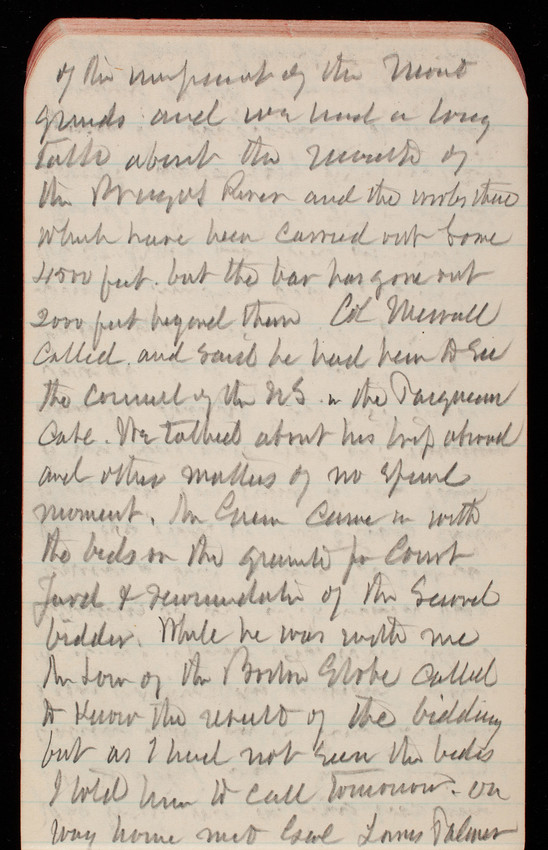 of the of the Mont
grounds and we had a long
talk about the mouth of
the Brazos River and the works there
which have been carried out some
4500 feet. but the bar has gone out
2000 feet beyond them Col
called. and said he had been to see
the counsel of the US in the
case. We talked about his trip abroad
and other matters of no special
moment. Mr Green came in with
the bids on the granite for Court
Yard & of the Second
bidder. While he was with me
Mr of the Boston Globe called
to know the result of the bidding
but as I had not seen the bids
I told him to call tomorrow. on
way home met Genl Palmer